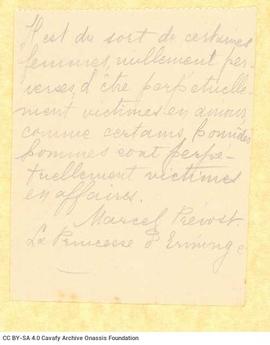 Il est du sort de certaines
femmes, nullement per-
verses, d'être perpétuelle-
ment victimes en amour,
comme certains
hommes sont perpé-
tuellement victimes
en affaires.
Marcel Prévost
La Princesse d'Erminge
CC BY-SA 4.0 Cavafy Archive Onassis Foundation